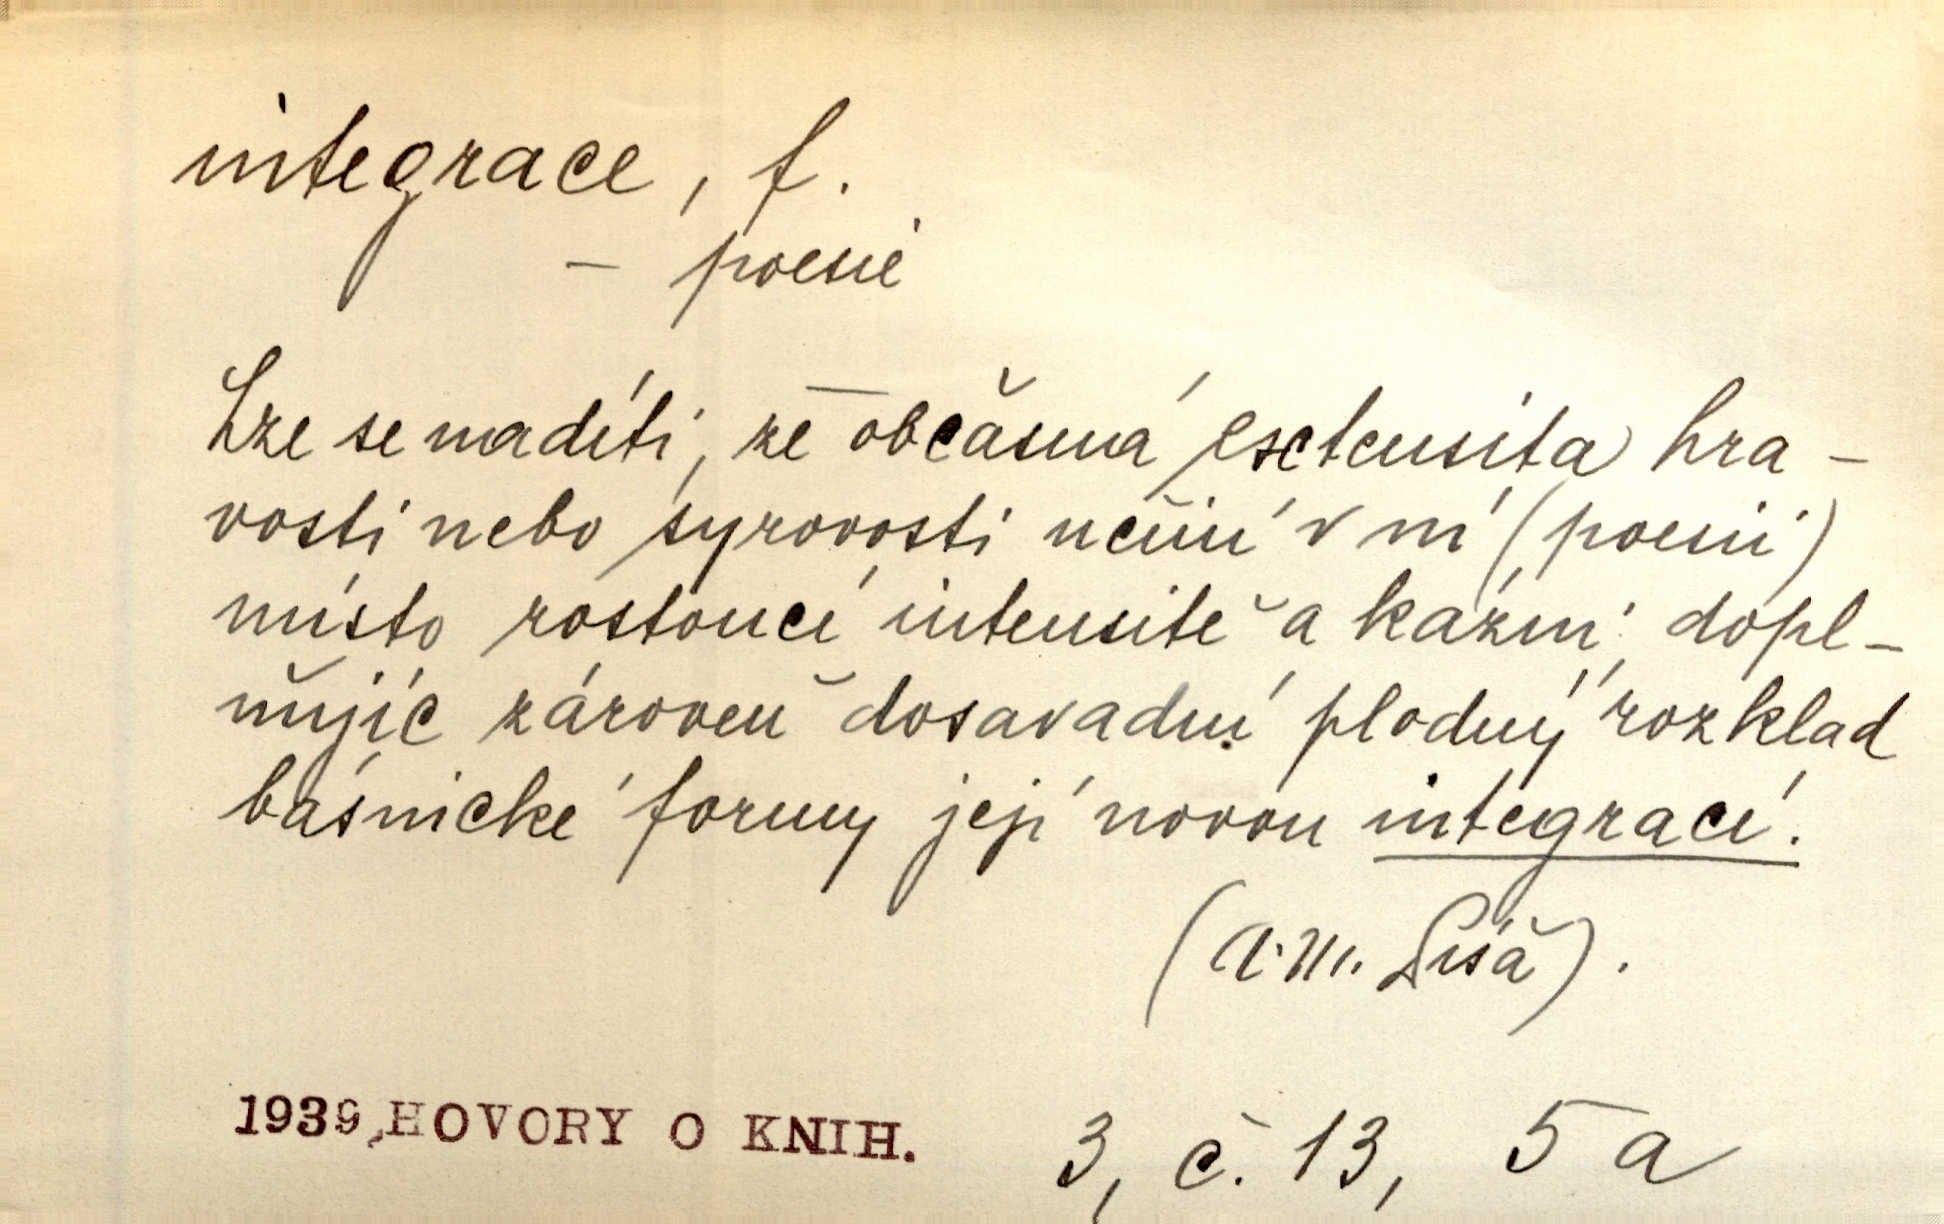 integrace, f.
– poesie
Lze se nadíti, že občasná extensita hra-
vosti nebo syrovosti učiní v ní (poesii)
místo rostoucí intensitě a kázni, dopl-
ňujíc zároveň dosavadní plodný rozklad
básnické formy její novou integrací.
(A. M. Píša).
1939, HOVORY O KNIH. 3, č. 13, 5a